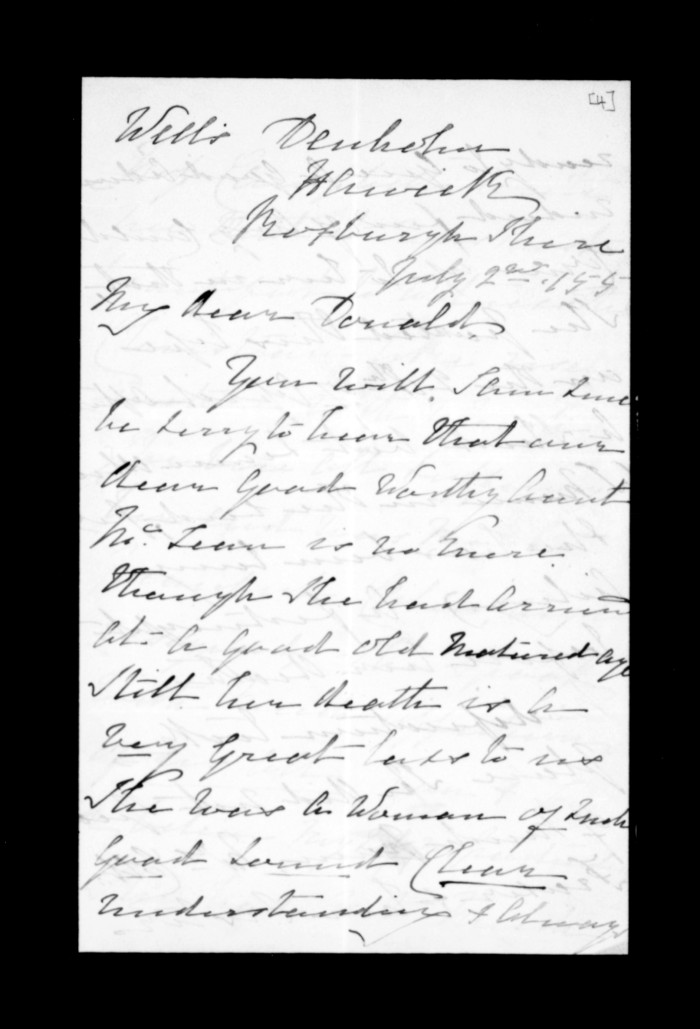 [4]
Wells Denholm
Hawick
Roxburgh Shire
July 2nd. 155
My dear Donald
You will, I am sure
be sorry to hear that our
dear Good Worthy Aunt
McLean is no more
though She had arrived
at a good old matured age
Still her death is a
very Great loss to us
She was a Woman of such
good sound Clear
understanding & always